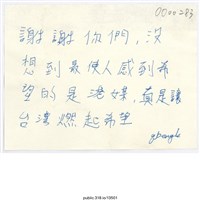 0000283
謝謝你們，沒
想到最使人感到希
望的是港媒，真是讓
台灣燃起希望
public.318.io/10501